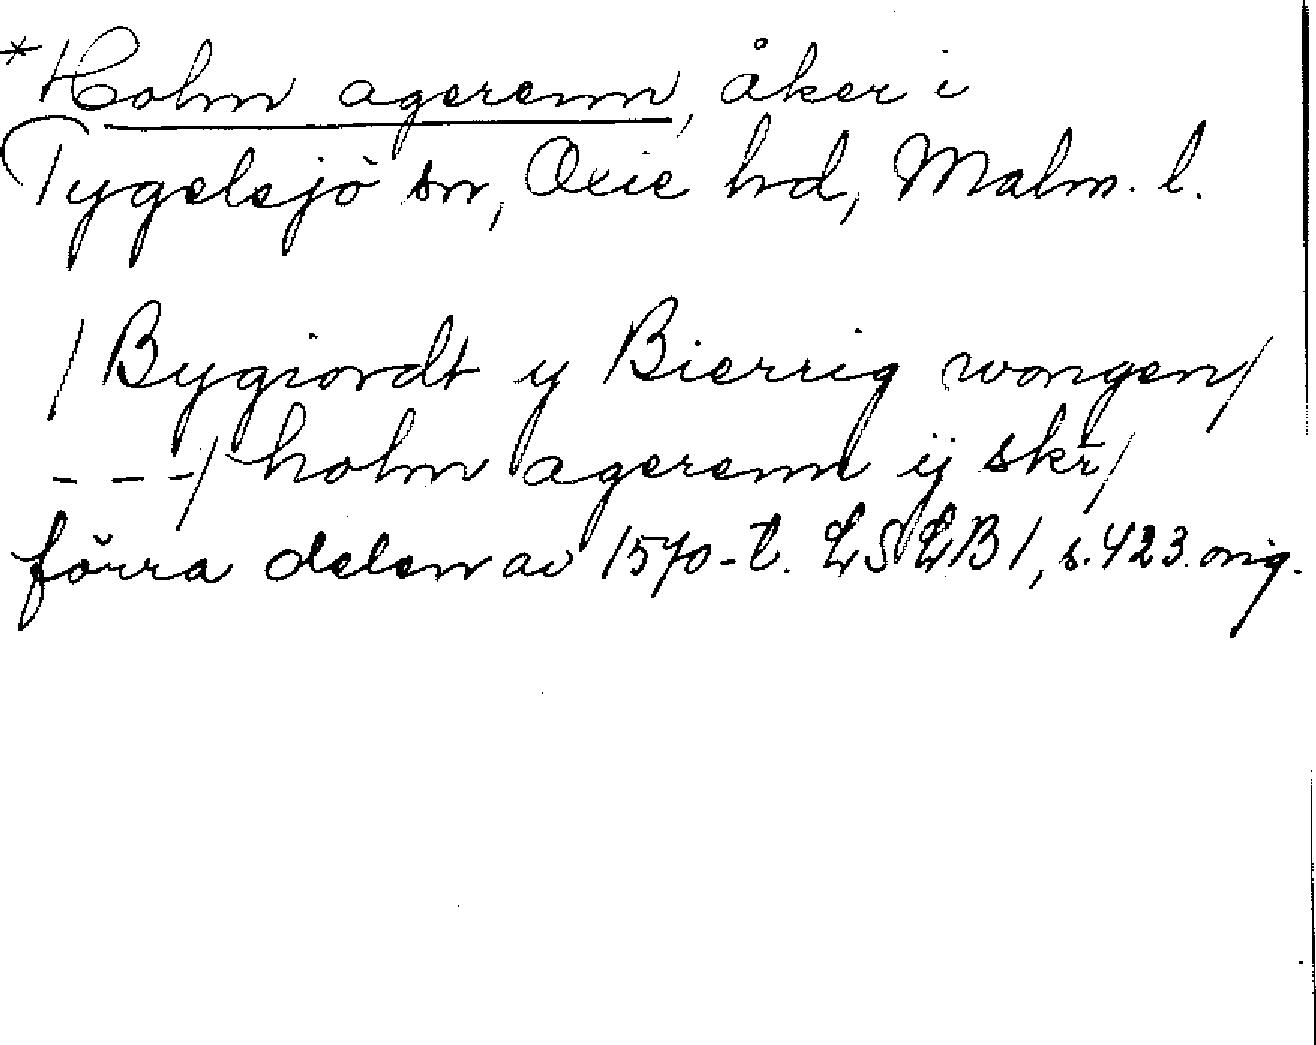 *Holm agerenn, åker i
Tygelsjö sn, Oxie hd, Malm. l.
/Bygiordt y Bierrig wongen/
---/holm agerenn ij skr/
förra delen av 1570-t. LSLB1, s.423. orig.